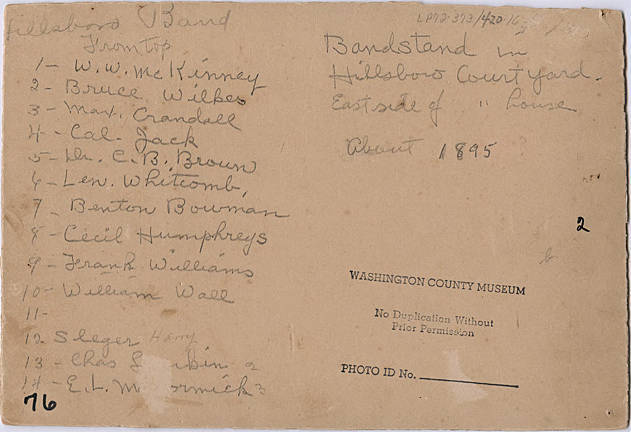 Hillsboro Band
From top
1- W. W. McKinney
2- Bruce Wilkes
3- Max. Crandall
4- Cal. Jack
5- Dr. C. B. Brown
6- Len. Whitcomb,
7 - Benton Bowman
8 - Cecil Humphreys
9 - Frank Williams
10 - William Wall
11-
12 Sleger Harry
13 - Chas
14 - E. L. McCormick 3
76
LP72-373/420-16
Bandstand in
Hillsboro Courtyard.
East side of " house
About 1895
2
WASHINGTON COUNTY MUSEUM
No Duplication Without
Prior Permission
PHOTO ID No.